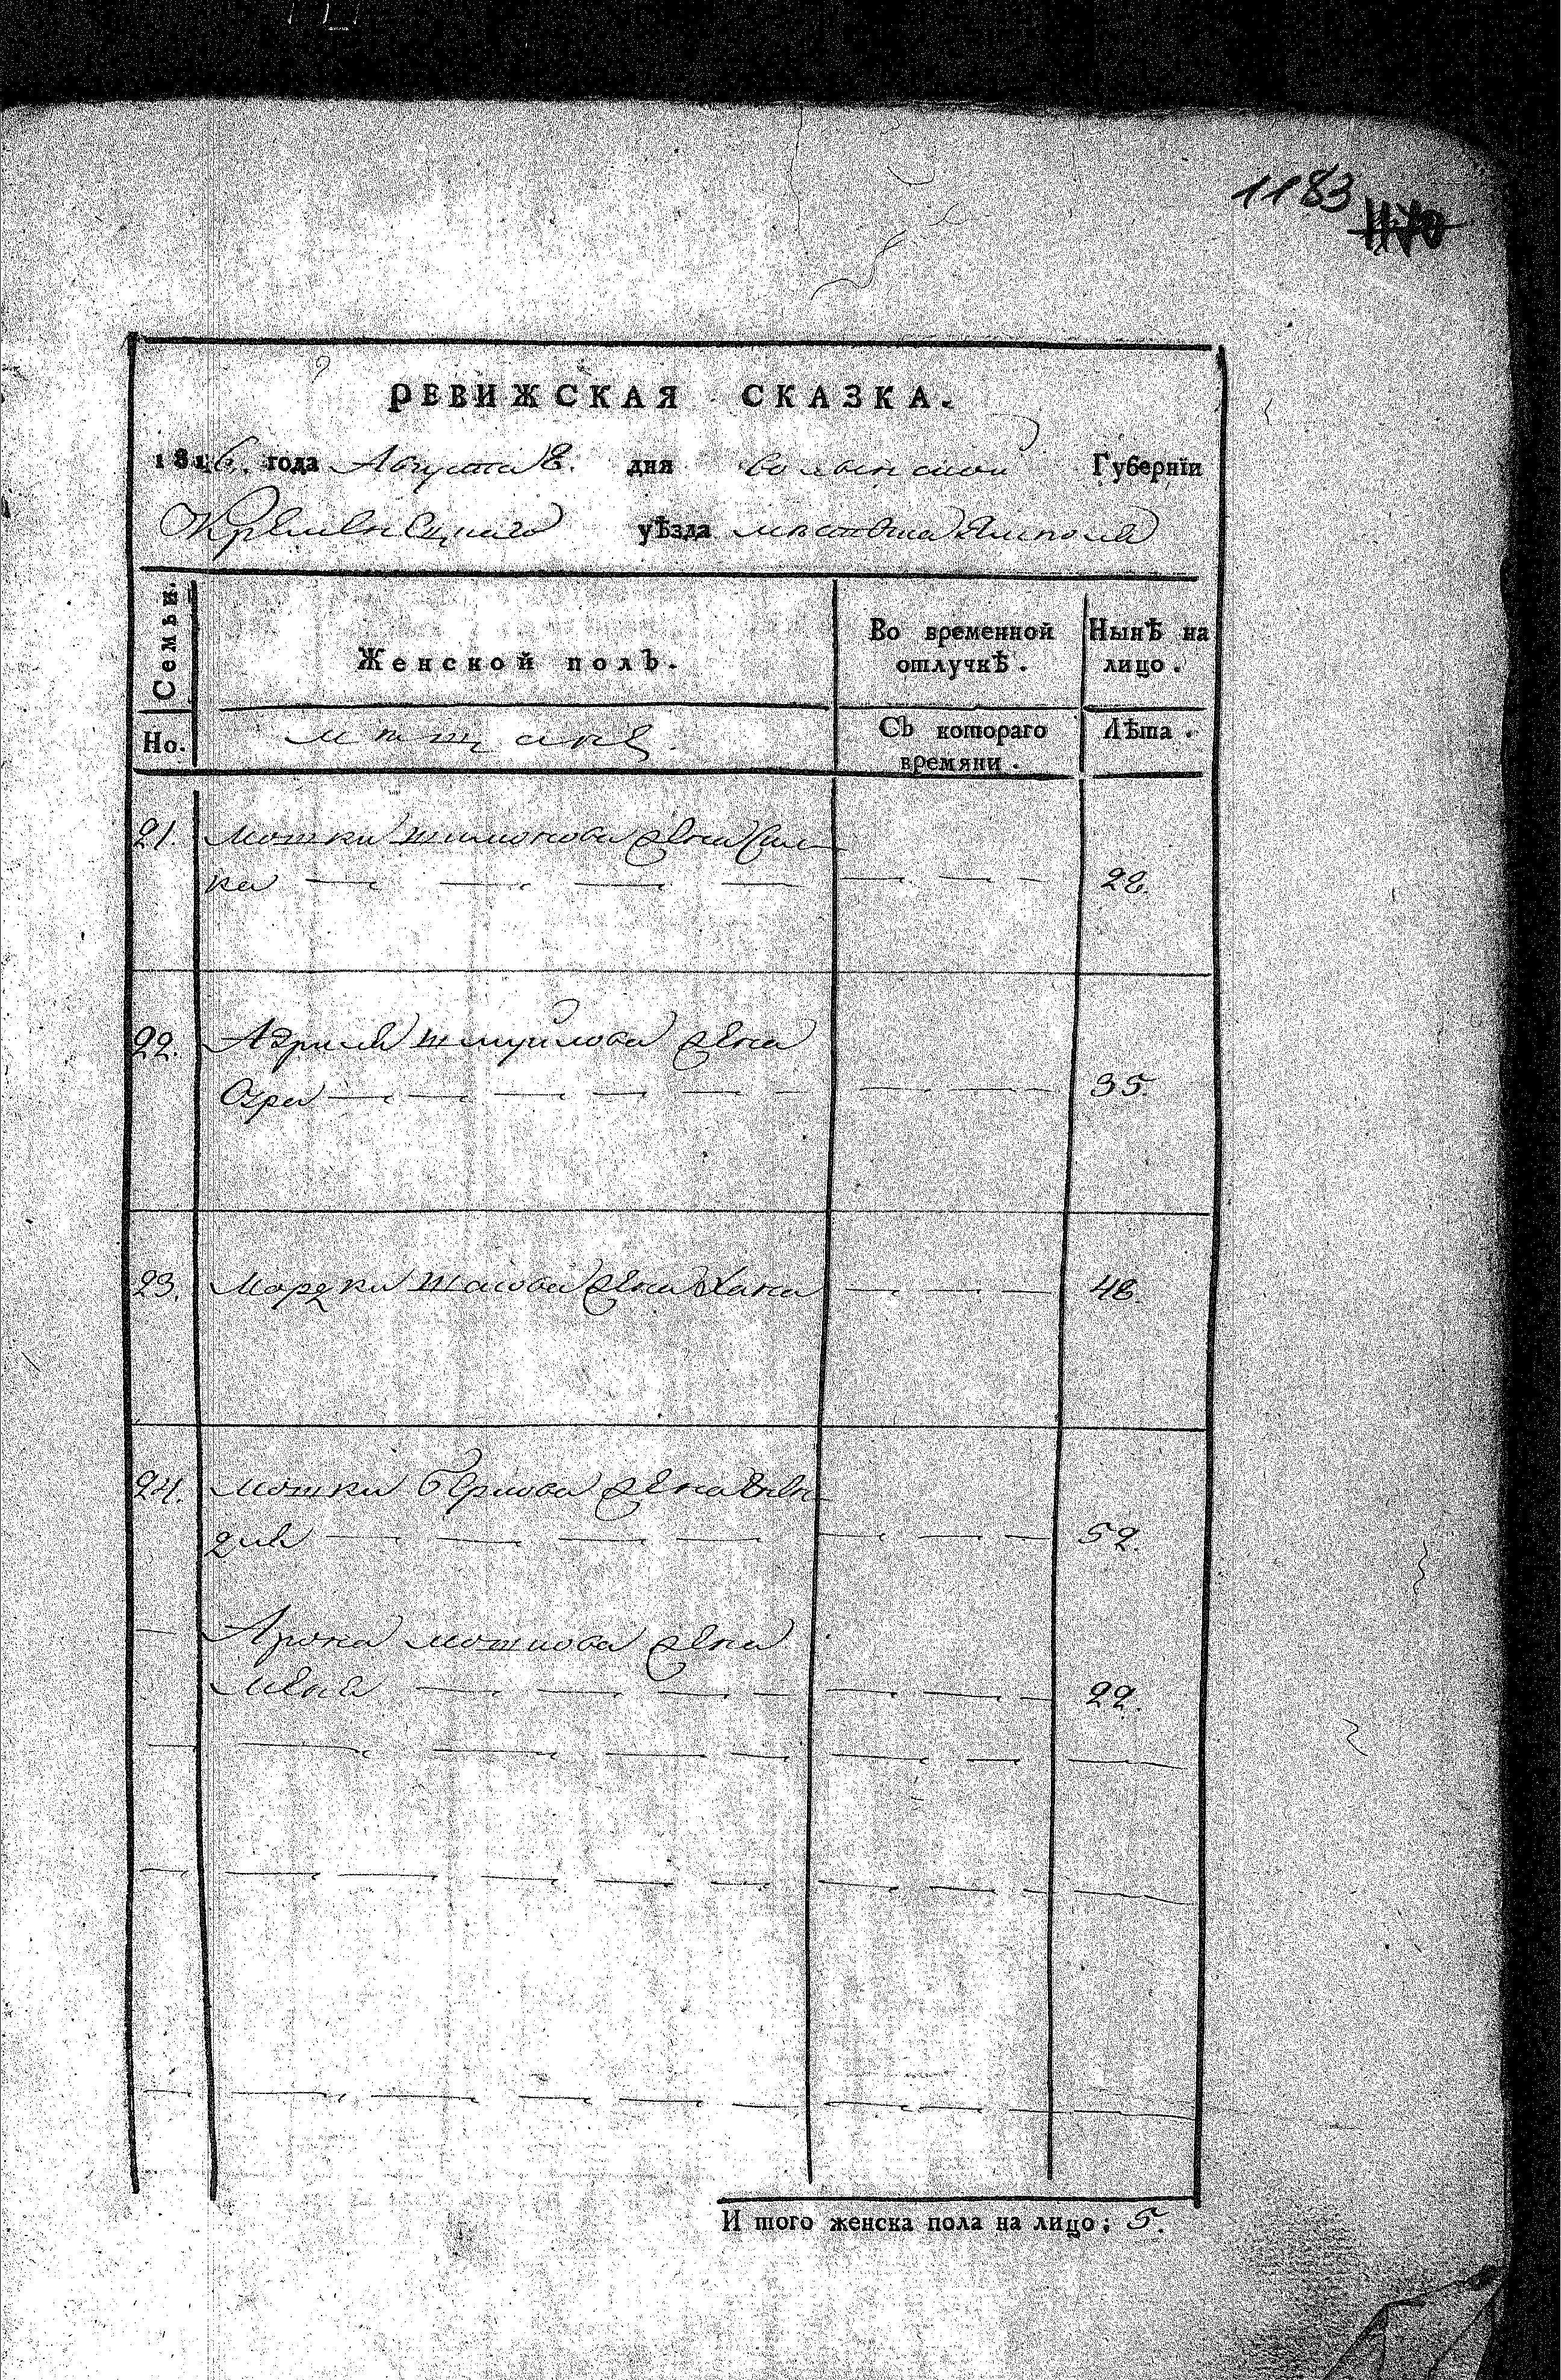 1183 1170
РЕВИЖСКАЯ СКАЗКА.
1816. года Августа 8. дня волынской Губернїи
Кременецкаго уѣзда местечка Ямполя
Семьи.
Женской полъ.
Во временной
отлучкѣ.
Нынѣ на
лицо.
Но.
мещане
Съ котораго
времяни.
Лѣта.
21. Мошки шимонова жена
ка 28.
22. Адриля шмуйлова жена
35.
23. Мордки жена Хана 48.
24. Мошки Беркова жена
52.
Арона мошкова жена
22.
И того женска пола на лицо: 5.